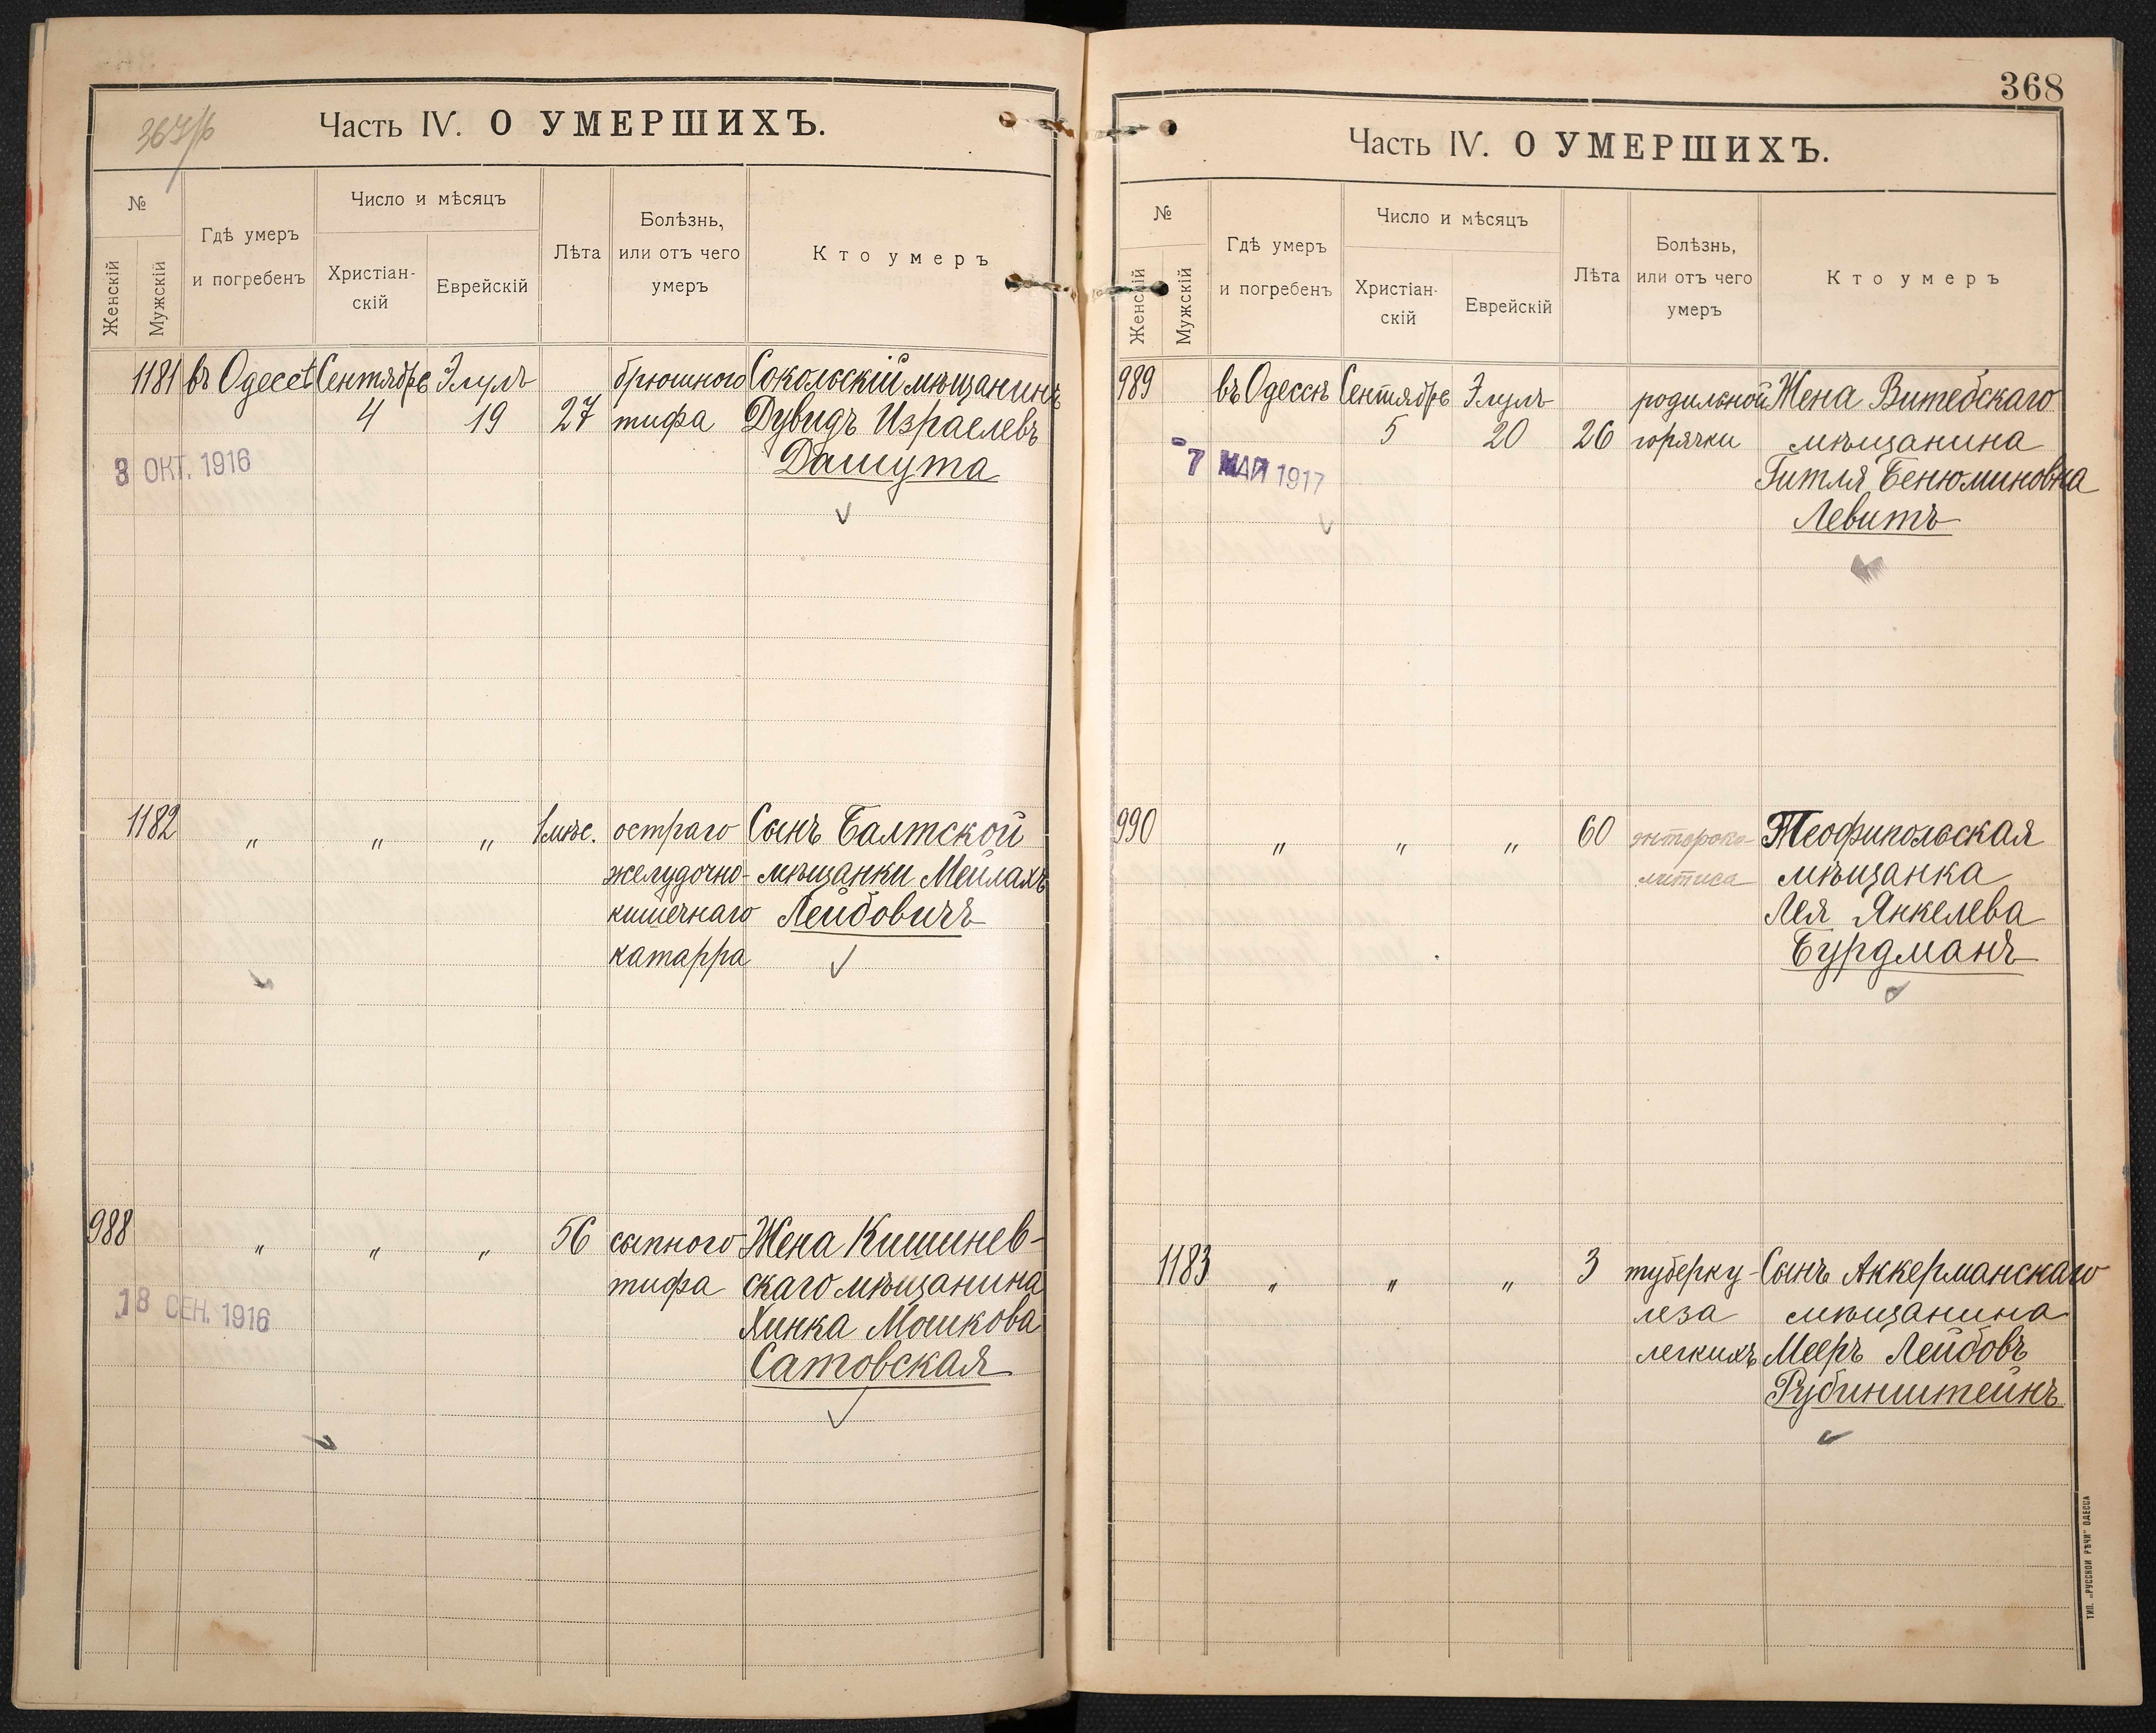 367/б
Часть IV. О УМЕРШИХЪ.
№
Женскій
Мужскій
Гдѣ умеръ
и погребенъ
Число и мѣсяцъ
Христіан-
скій
Еврейскій
Лѣта
Болѣзнь,
или отъ чего
умеръ
Кто умеръ
1181 въ Одессѣ Сентябрь Элулъ брюшного Сокольскій мѣщанинъ
4 19 27 тифа Дувидъ Израелевъ
Дашута
3 ОКТ. 1916
1182 " " " 1 мѣс. остраго Сынъ Балтской
желудочно- мѣщанки Мейлахъ
кишечнаго Лейбовичъ
катарра
988 " " " 56 сыпного Жена Кишинев-
тифа скаго мѣщанина
Хинка Мошкова
Сатовская
18 СЕН. 1916
368
Часть IV. О УМЕРШИХЪ.
№
Женскій
Мужскій
Гдѣ умеръ
и погребенъ
Число и мѣсяцъ
Христіан-
скій
Еврейскій
Лѣта
Болѣзнь,
или отъ чего
умеръ
Кто умеръ
989 въ Одессѣ Сентябрь Элулъ родильной Жена Витебскаго
5 20 26 горячки мѣщанина
Гитля Бенюминовна
Левитъ
-7 МАЙ 1917
990 " " " 60 энтероко- Теофипольская
литиса мѣщанка
Лея Янкелева
Бурдманъ
1183 " " " 3 туберку- Сынъ Аккерманскаго
леза мѣщанина
легкихъ Мееръ Лейбовъ
Рубинштейнъ
ТИП. „РУССКОЙ РѢЧИ" ОДЕССА